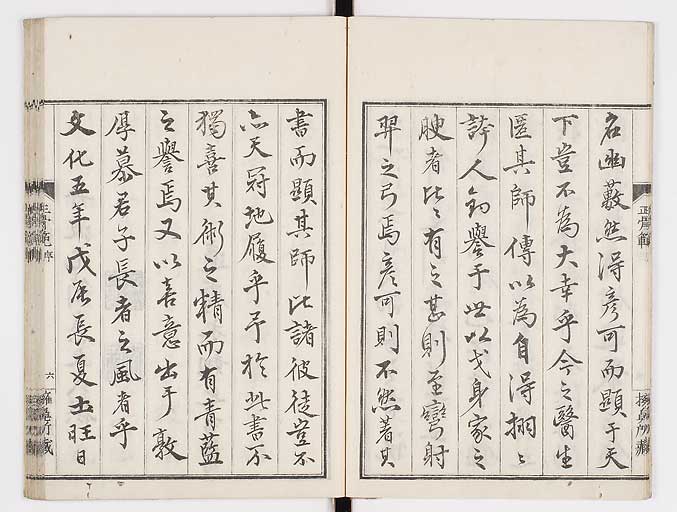 名幽藪然得彥可而顯于天
下豈不為大幸乎今之醫生
匿其師傳以為自得栩〻
誇人釣譽于世以戈身家之
腴者比〻有之甚則至彎射
羿之弓焉彥可則不然著其
正骨範
書而顯其師比諸彼徒豈不
亦天冠地履乎予於此書不
獨喜其術之精而有青藍
之譽焉又以喜意出乎敦
厚慕君子長者之風者乎
文化五年戊辰長夏土旺日
六